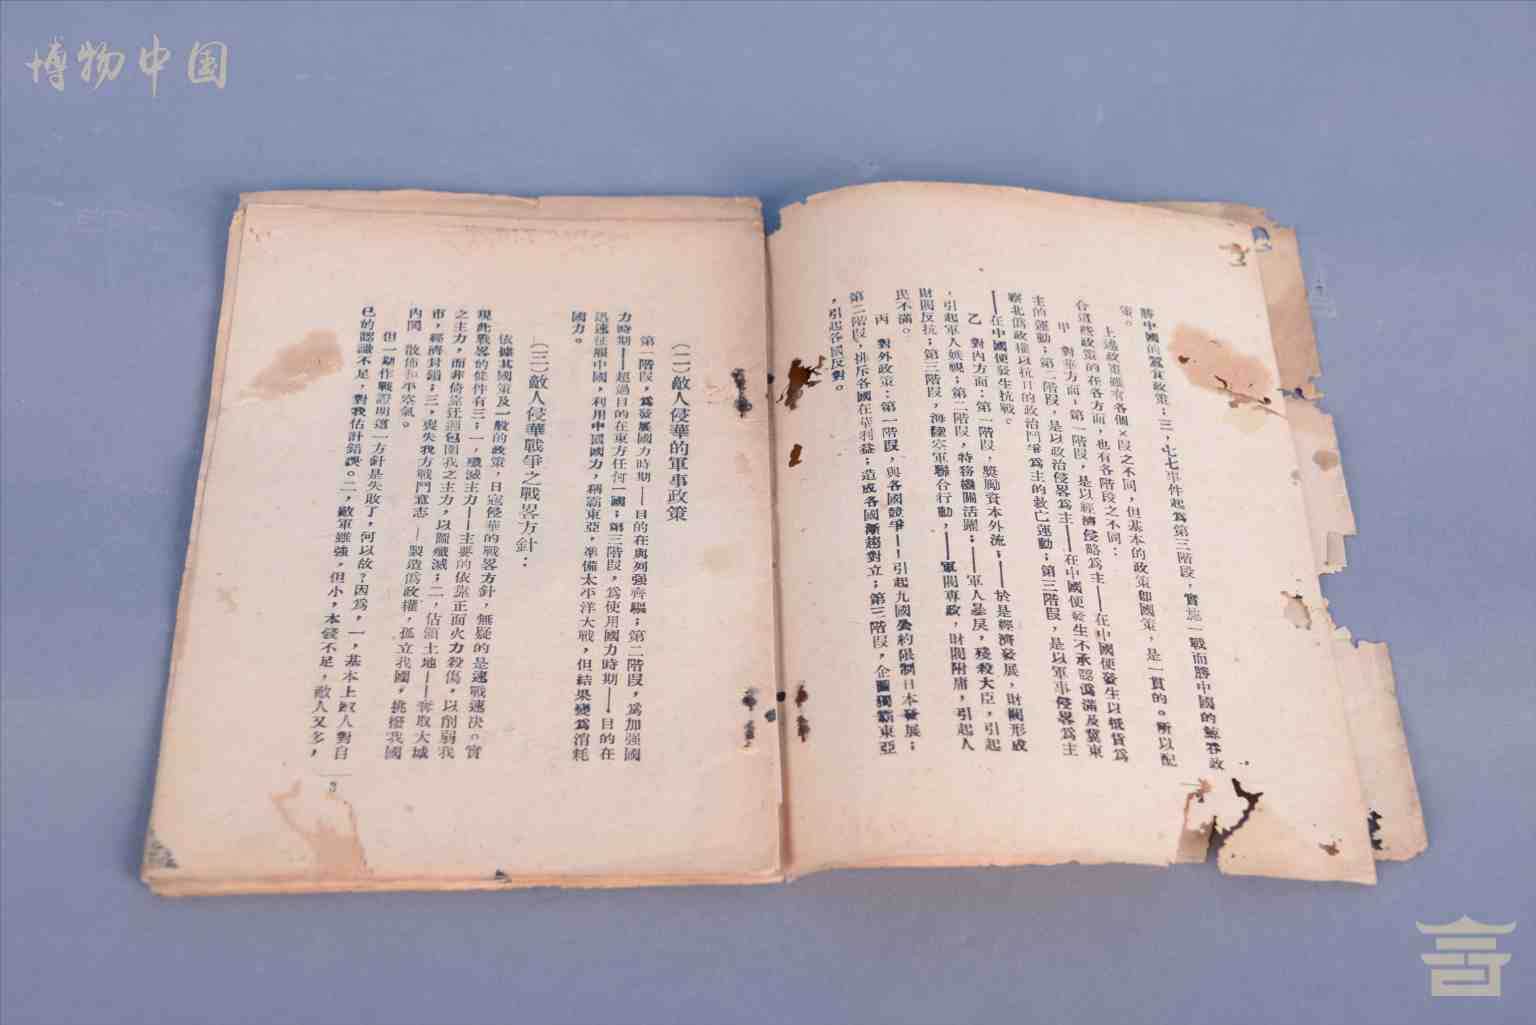 博物中国
勝中國的蠶食政策；三，七七事件起爲第三階段，實施一戰而勝中國的鯨吞政
策。
上述政策雖有各個×段之不同，但基本的政策卽國策，是一貫的。所以配
合這些政策的在各方面，也有各階段之不同：
甲　對華方面：第一階段，是以經濟侵略爲主——在中國便發生以抵貨爲
主的運動；第二階段，是以政治侵畧爲主——在中國便發生不承認僞滿及冀東
察北僞政權以抗日的政治鬥爭爲主的救亡運動；第三階段，是以軍事侵畧爲主
——在中國便發生抗戰。
乙　對內方面：第一階段，奬勵資本外流；——於是經濟發展，財閥形成
，引起軍人嫉視；第二階段，特務機關活躍；——軍人暴戾，殘殺大臣，引起
財閥反抗；第三階段，海陸空軍聯合行動，——軍閥專政，財閥附庸，引起人
民不滿。
丙　對外政策：第一階段，與各國競爭——引起九國公約限制日本發展；
第二階段，排斥各國在華利益；造成各國漸趨對立；第三階段，企圖獨霸東亞
，引起各國反對。
（二）敵人侵華的軍事政策
第一階段，爲發展國力時期——目的在與列强齊驅；第二階段，爲加强國
力時期——超過目的在東方任何一國；第三階段，爲使用國力時期——目的在
迅速征服中國，利用中國國力，稱霸東亞，準備太平洋大戰，但結果變爲消耗
國力。
（三）敵人侵華戰爭之戰畧方針：
依據其國策及一般的政策，日寇侵華的戰畧方針，無疑的是速戰速决。實
現此戰畧的條件有三：一，殲滅主力——主要的依靠正面火力殺傷，以削弱我
之主力，而非倚靠迂迴包圍我之主力，以圖殲滅；二，佔領土地——奪取大城
市，經濟封鎖；三，喪失我方戰鬥意志——製造僞政權，孤立我國，挑撥我國
內鬨　散佈和平空氣。
但一期作戰證明這一方針是失敗了，何以故？因爲，一，基本上敵人對自
己的認識不足，對我估計錯誤。二，敵軍雖強，但小，本錢不足，敵人又多，
3